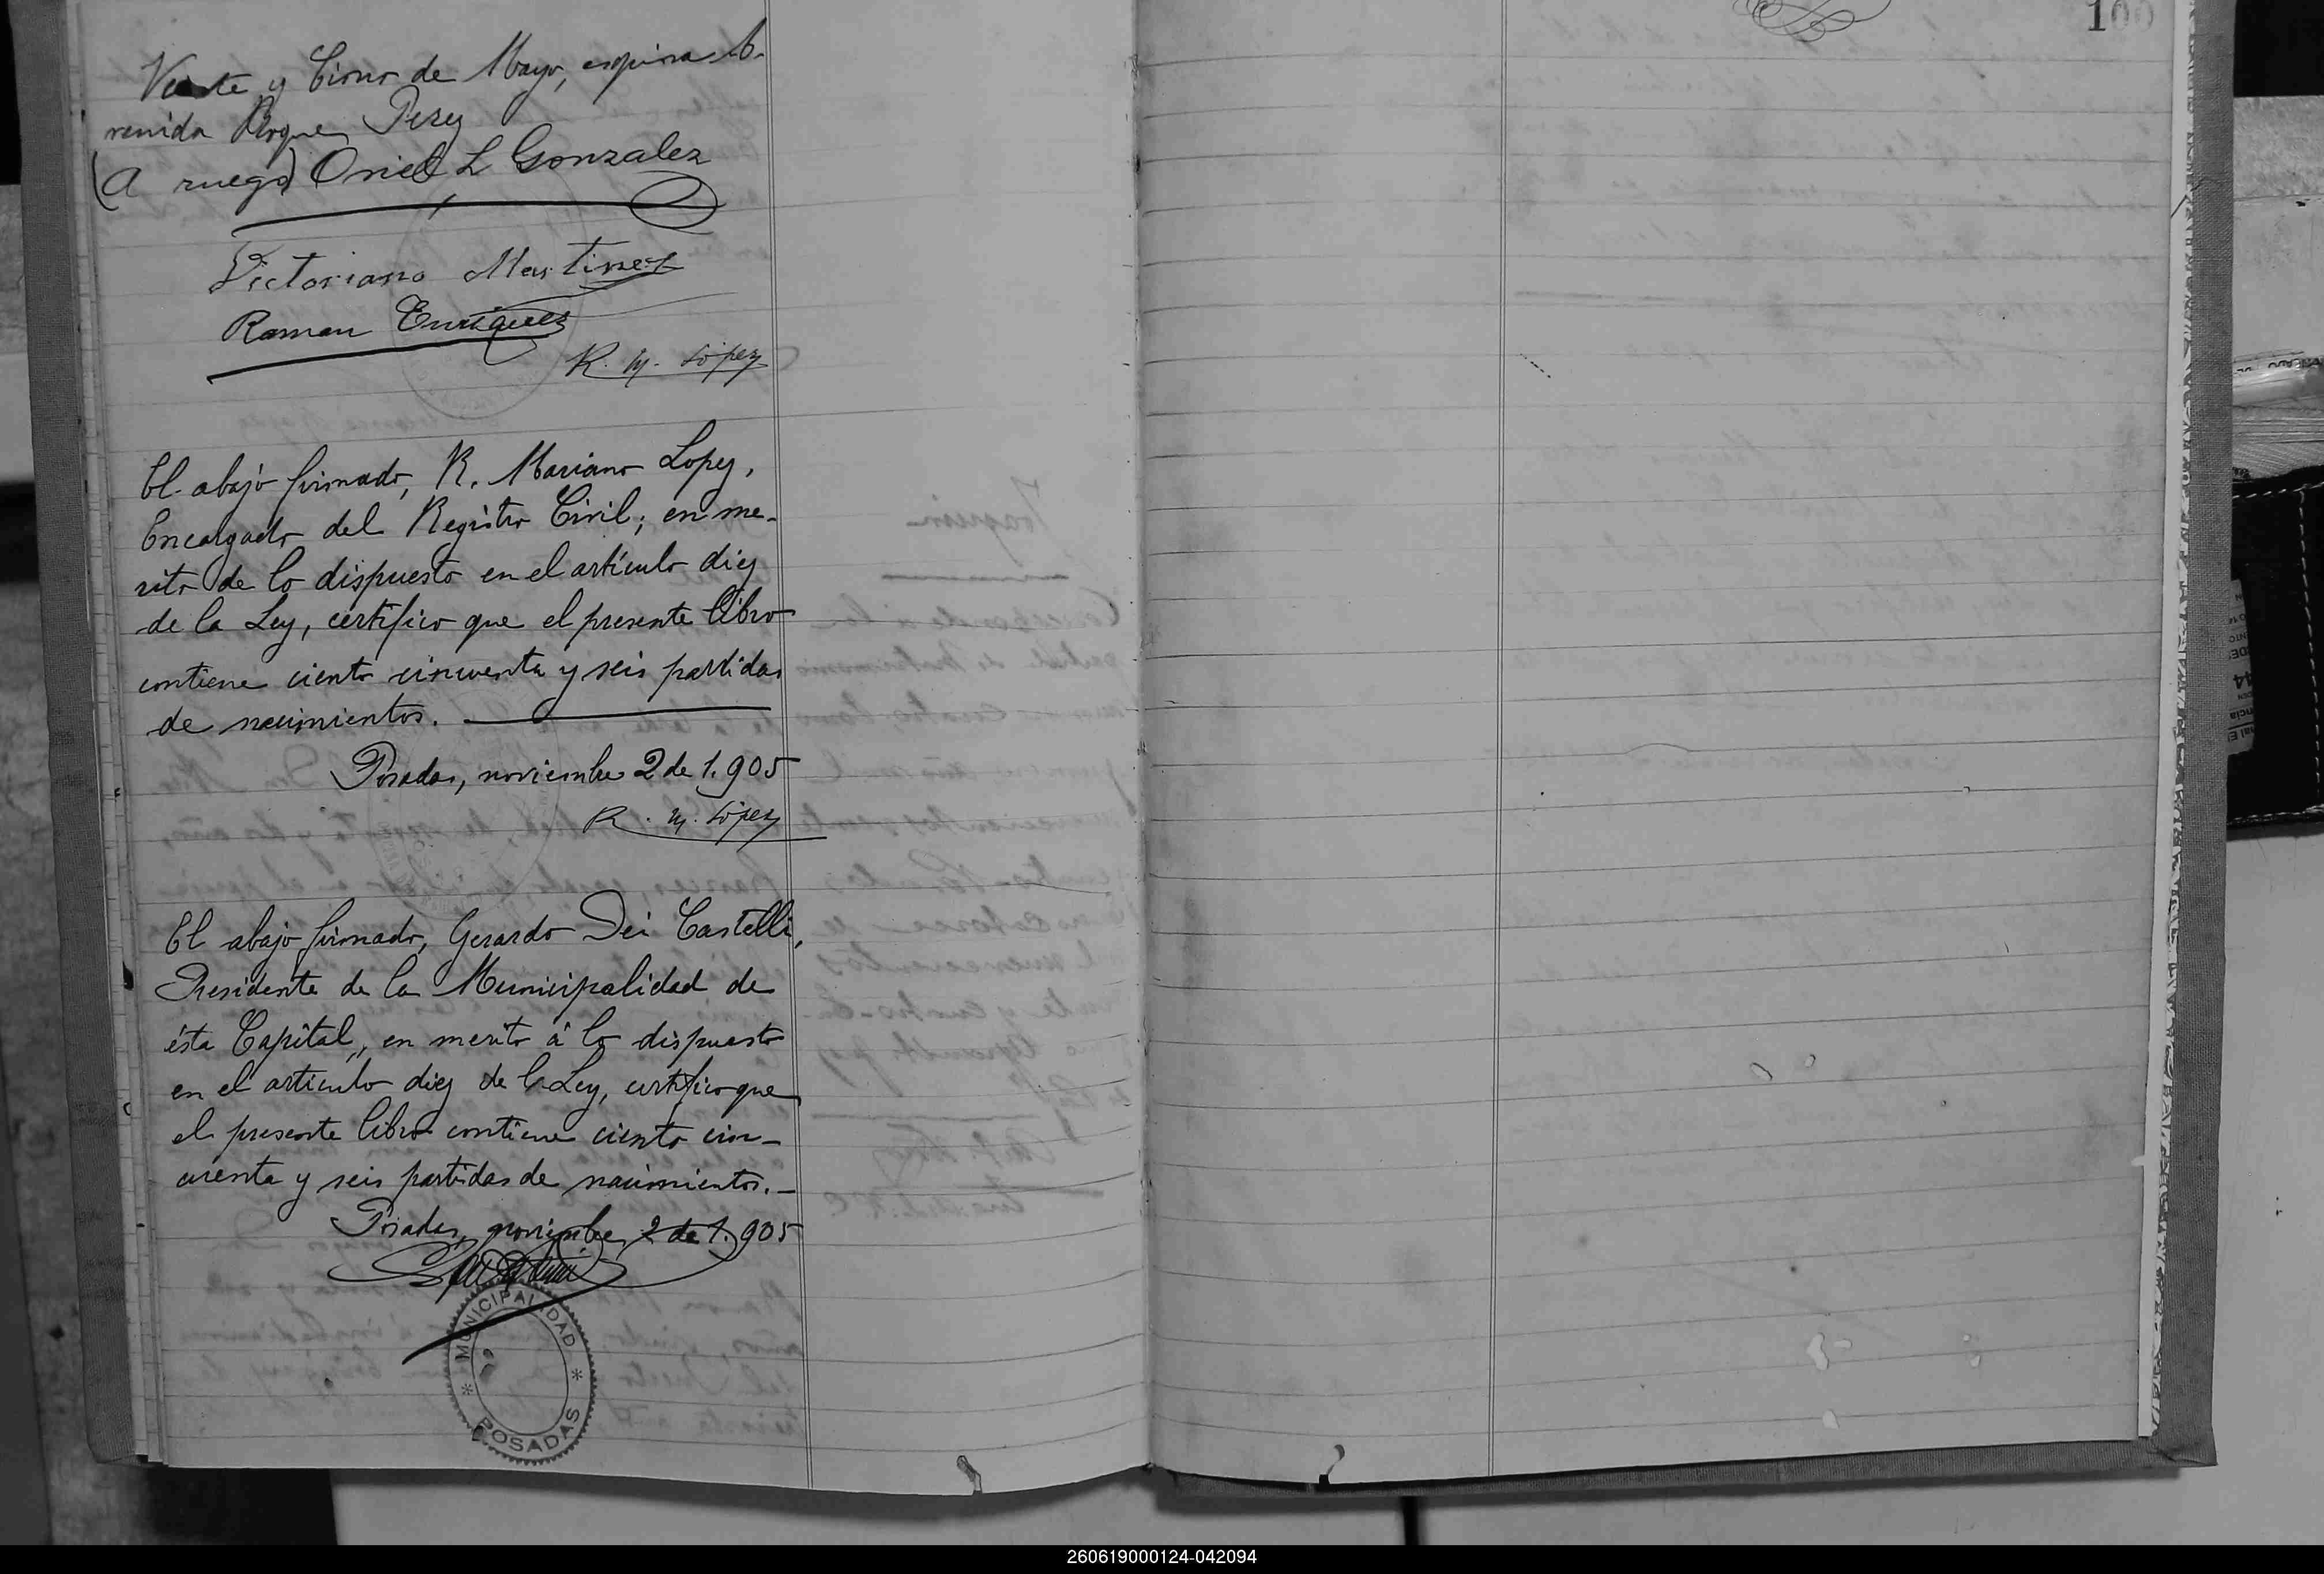 Veinte y Cinco de Mayo, esquina A-
venida Roque Perez
(A ruego) Oriel L Gonzalez
Victoriano Martinez
Ramon Enriquez
R. M. López
El abajo firmado, R. Mariano Lopez,
Encargado del Registro Civil; en me-
rito de lo dispuesto en el artículo diez
de la Ley, certifico que el presente libro
contiene ciento cincuenta y seis partidas
de nacimientos.
Posadas, noviembre 2 de 1.905
R. M. López
El abajo firmado, Gerardo Dei Castelli,
Presidente de la Municipalidad de
ésta Capital, en merito á lo dispuesto
en el articulo diez de la Ley, certifico que
el presente libro contiene ciento cin-
cuenta y seis partidas de nacimientos.-
Posadas, noviembre 2 de 1.905
MUNICIPALIDAD
* *
POSADAS
100
260619000124-042094